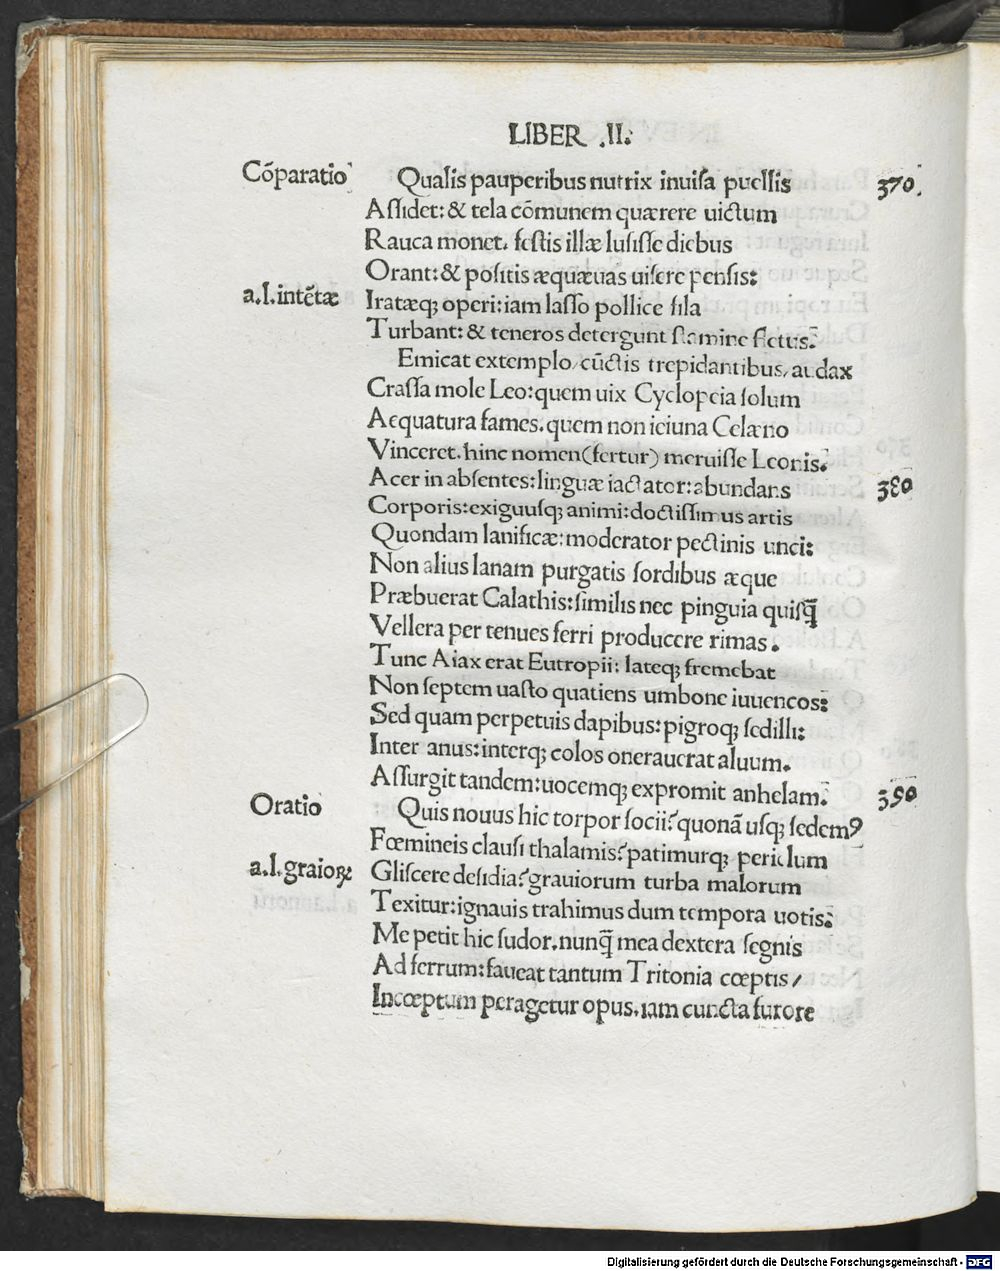 LIBER .II.
Cōparatio
Qualis pauperibus nutrix inuiſa puellis
370
Aſſidet: & tela cōmunem quærere uictum
Rauca monet. feſtis illæ luſiſſe diebus
Orant: & poſitis æquæuas uiſere penſis:
a.l.intētæ
Iratæq; operi: iam laſſo pollice fila
Turbant: & teneros detergunt ſtamine fletus:
Emicat extemplo/cūctis trepidantibus/audax
Craſſa mole Leo: quem uix Cyclopeia ſolum
Aequatura fames. quem non ieiuna Celæno
Vinceret. hinc nomen(fertur) meruiſſe Leonis.
Acer in abſentes: linguæ iactator: abundans
380
Corporis: exiguuſq; animi: doctiſſimus artis
Quondam lanificæ: moderator pectinis unci:
Non alius lanam purgatis ſordibus æque
Præbuerat Calathis: ſimilis nec pinguia quiſq̄
Vellera per tenues ferri producere rimas.
Tunc Aiax erat Eutropii: lateq; fremebat
Non ſeptem uaſto quatiens umbone iuuencos:
Sed quam perpetuis dapibus: pigroq; ſedilli:
Inter anus: interq; colos onerauerat aluum.
Aſſurgit tandem: uocemq; expromit anhelam.
390
Oratio
Quis nouus hic torpor ſocii? quonā uſq; ſedemꝰ
Fœmineis clauſi thalamis? patimurq; periclum
a.l.graioꝝ
Gliſcere deſidia? grauiorum turba malorum
Texitur: ignauis trahimus dum tempora uotis:
Me petit hic ſudor. nunq̄ mea dextera ſegnis
Ad ferrum: faueat tantum Tritonia cœptis/
Incœptum peragetur opus. iam cuncta furore
Digitalisierung gefördert durch die Deutsche Forschungsgemeinschaft - DFG